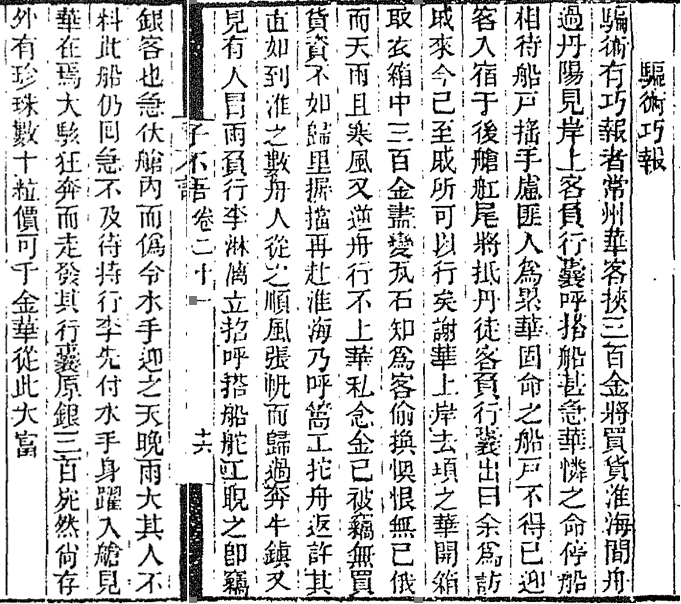 騙術巧報
騙術有巧報者常州華客挾三百金將買貨淮海間舟
過丹陽見岸上客負行囊呼搭船甚急華憐之命停船
相待船戶搖手慮匪人為累華固命之船戶不得已迎
客入宿于後艙舡尾將抵丹徒客負行囊出曰余為訪
戚來今已至戚所可以行矣謝華上岸去頃之華開箱
取衣箱中三百金盡變瓦石知為客偷換懊恨無已俄
而天雨且寒風又逆舟行不上華私念金已被竊無買
貨資不如歸里摒擋再赴淮海乃呼篙工拕舟返許其
直如到淮之數舟人從之順風張帆而歸過奔牛鎮又
見有人冒雨負行李淋漓立招呼搭船舵工睨之即竊
子不語 卷二十一 十六
銀客也急伏艙內而偽令水手迎之天晚雨大其人不
料此船仍回急不及待持行李先付水手身躍入艙見
華在焉大駭狂奔而走發其行囊原銀三百宛然尚存
外有珍珠數十粒價可千金華從此大富